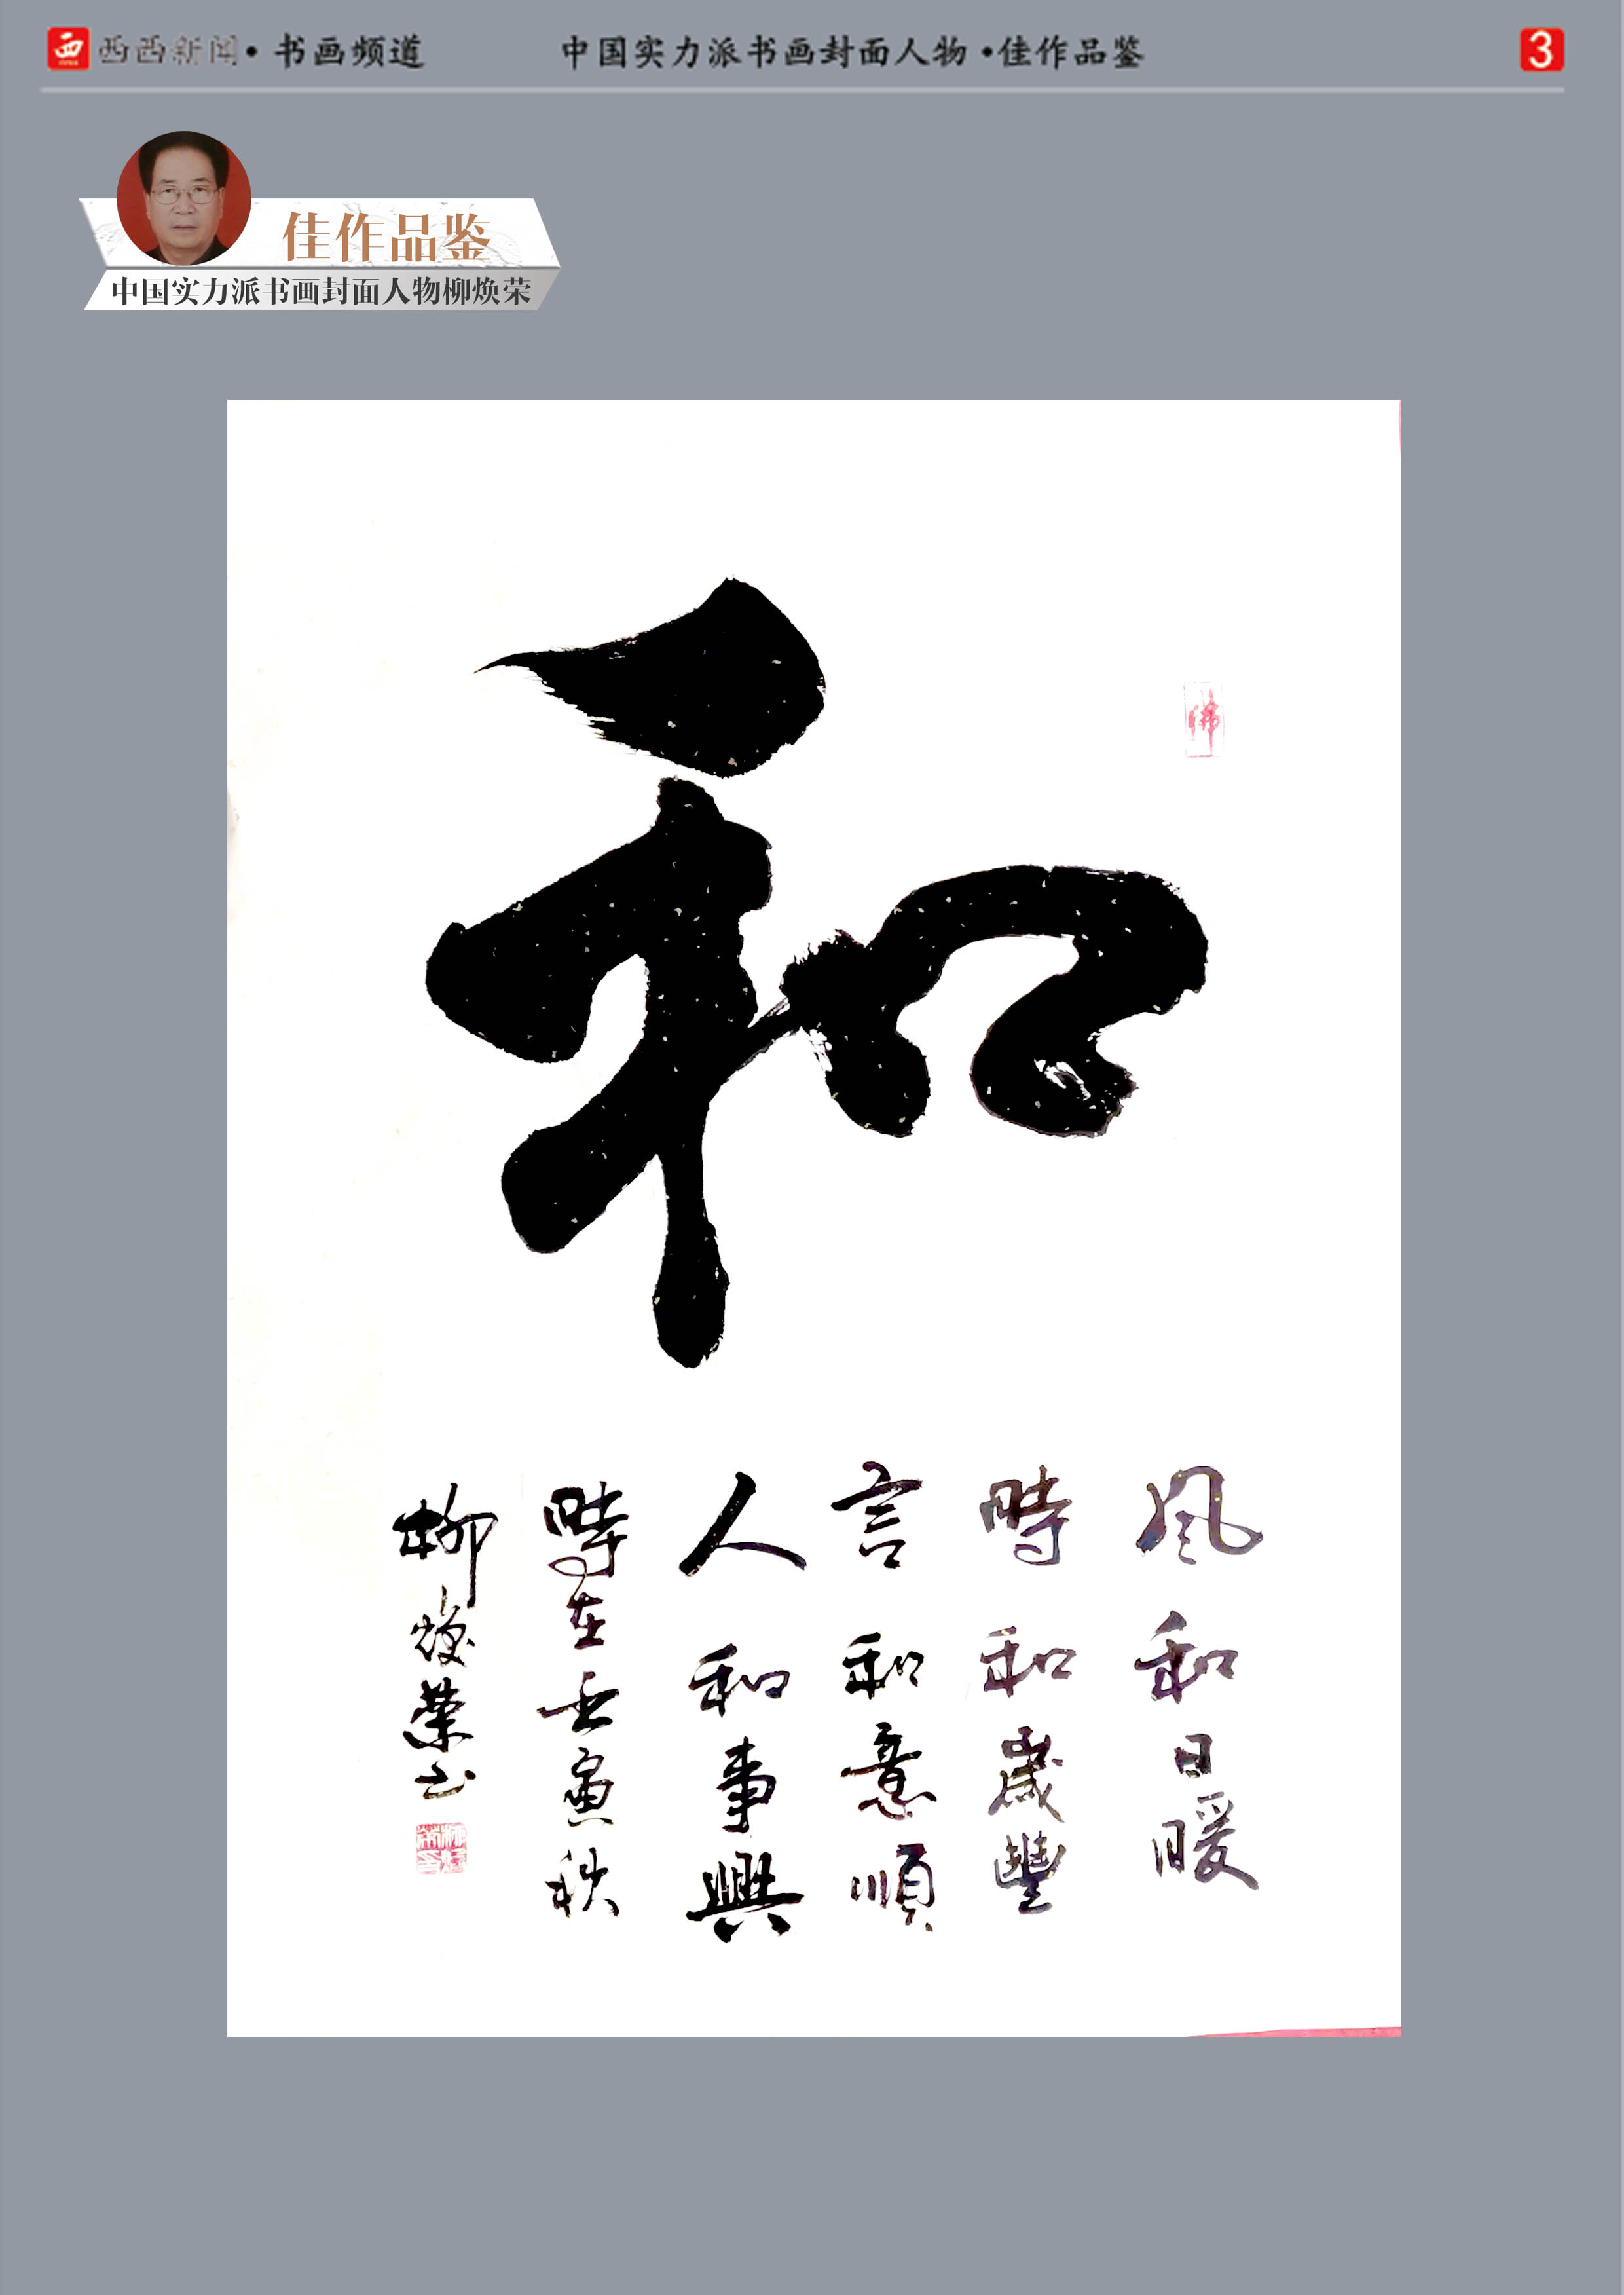 西西新闻•书画频道
中国实力派书画封面人物•佳作品鉴
3
佳作品鉴
中国实力派书画封面人物柳焕荣
和
佛
風和日暖
時和歲豐
言和意順
人和事興
時在壬寅秋
柳焕荣书